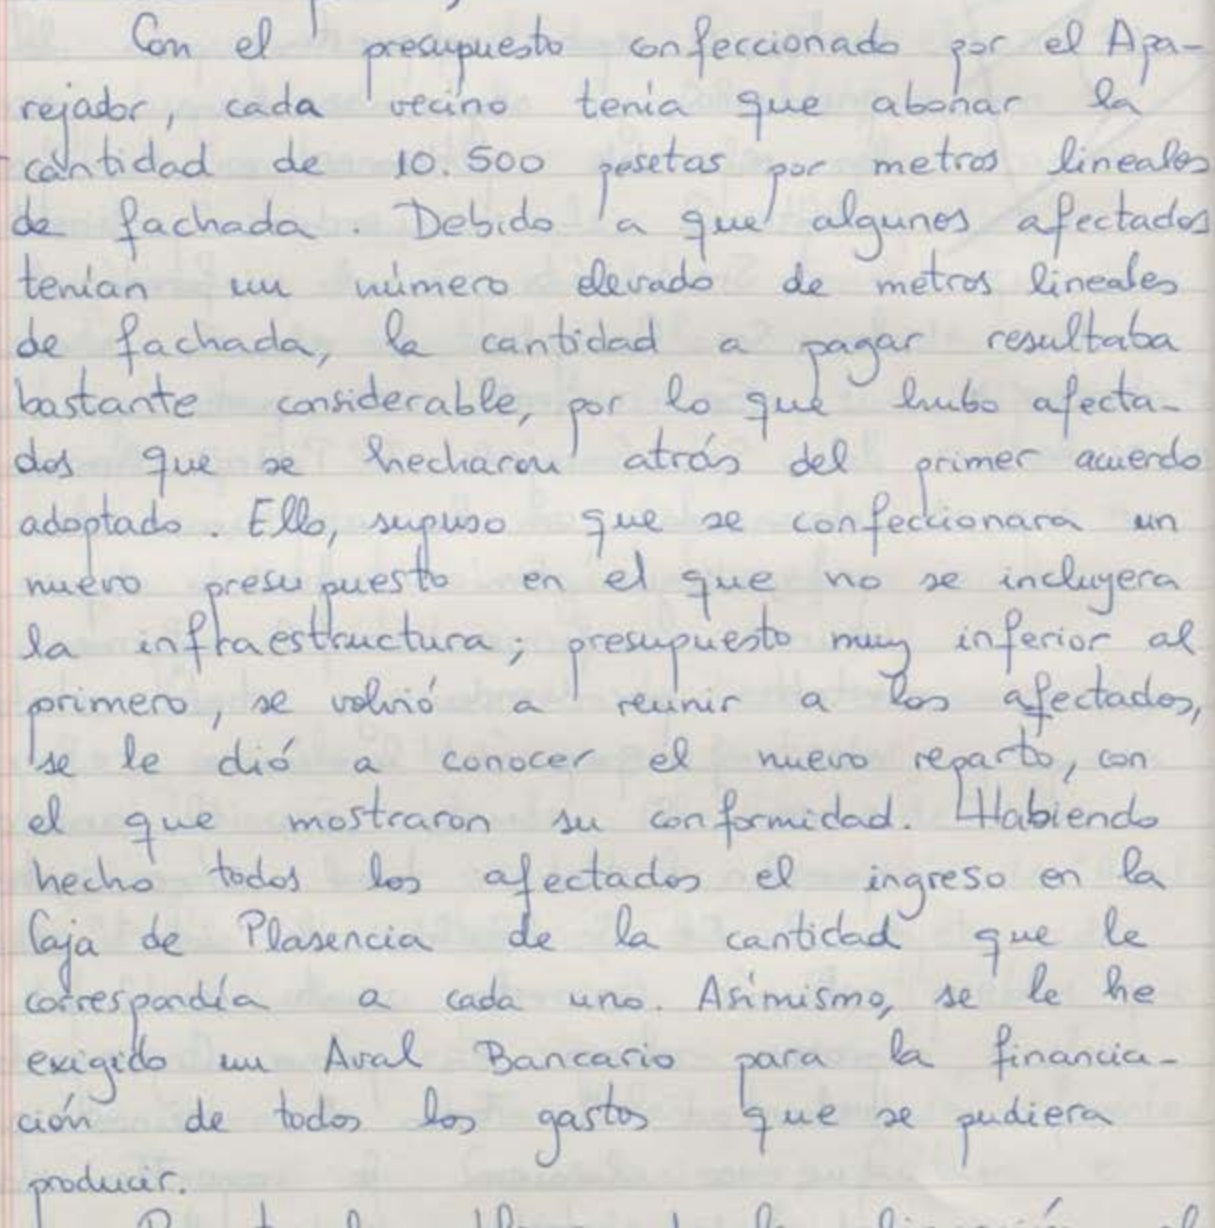 Con el presupuesto confeccionado por el Apa-
rejador, cada vecino tenia que abonar la
cantidad de 10.500 pesetas por metros lineales
de fachada. Debido a que algunos afectados
tenían un número elevado de metros lineales
de fachada, la cantidad a pagar resultaba
bastante considerable, por lo que hubo afecta-
dos que se hecharon atrás del primer acuerdo
adoptado. Ello, supuso que se confeccionara un
nuevo presupuesto en el que no se incluyera
la infraestructura; presupuesto muy inferior al
primero, se volvió a reunir a los afectados,
se le dió a conocer el nuevo reparto, con
el que mostraron su conformidad. Habiendo
hecho todos los afectados el ingreso en la
Caja de Plasencia de la cantidad que le
correspondía a cada uno. Asímismo, se le he
exigido un Aval Bancario para la financia-
ción de todos los gastos que se pudiera
producir.